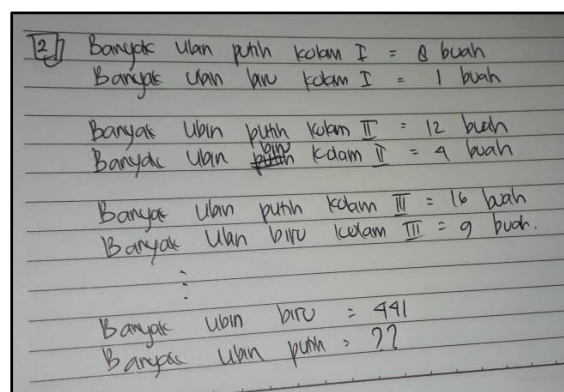 2 Banyak Ubin putih kolam I = 8 buah
Banyak Ubin biru kolam I = 1 buah
Banyak Ubin putih kolam II = 12 buah
Banyak Ubin biru kolam II = 4 buah
Banyak Ubin putih kolam III = 16 buah
Banyak Ubin biru kolam III = 9 buah.
⋮
Banyak Ubin biru = 441
Banyak Ubin putih = ??